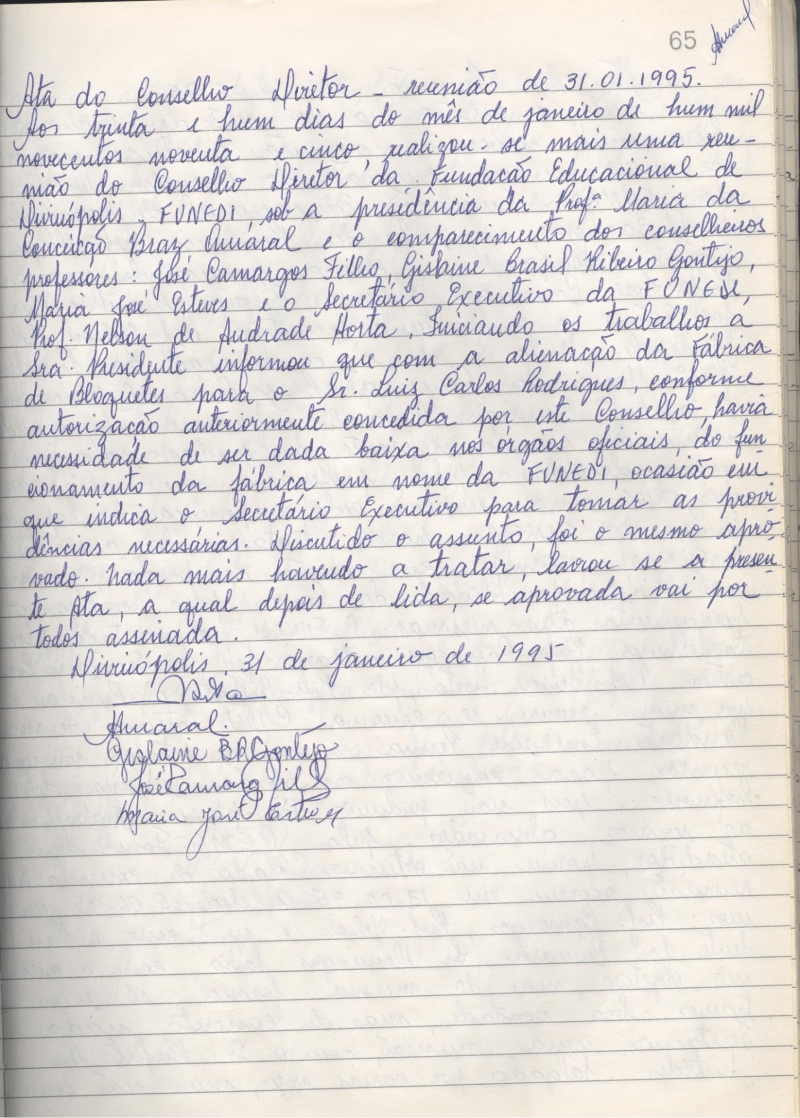 65
Amaral
Ata do Conselho Diretor - reunião de 31.01.1995.
Aos trinta e hum dias do mês de janeiro de hum mil
novecentos noventa e cinco realizou-se mais uma reu-
nião do Conselho Diretor da Fundação Educacional de
Divinópolis. FUNEDI, sob a presidência da Profª Maria da
Conceição Braz Amaral e o comparecimento dos conselheiros
professores: José Camargos Filho, Gislaine Brasil Ribeiro Gontijo,
Maria José Esteves e o Secretário Executivo da FUNEDI,
Prof. Nelson de Andrade Horta. Iniciando os trabalhos a
Sra. Presidente informou que com a alienação da Fábrica
de Bloquetes para o Sr. Luiz Carlos Rodrigues, conforme
autorização anteriormente concedida por este Conselho, havia
necessidade de ser dada baixa nos órgãos oficiais, do fun
cionamento da fábrica em nome da FUNEDI, ocasião em
que indica o Secretário Executivo para tomar as provi
dências necessárias. Discutido o assunto, foi o mesmo apro
vado. Nada mais havendo a tratar, lavrou se a presen-
te Ata, a qual depois de lida, se aprovada vai por
todos assinada.
Divinópolis, 31 de janeiro de 1995
Amaral.
Gislaine B.R. Gontijo
José Camargos Filho
Maria José Esteves